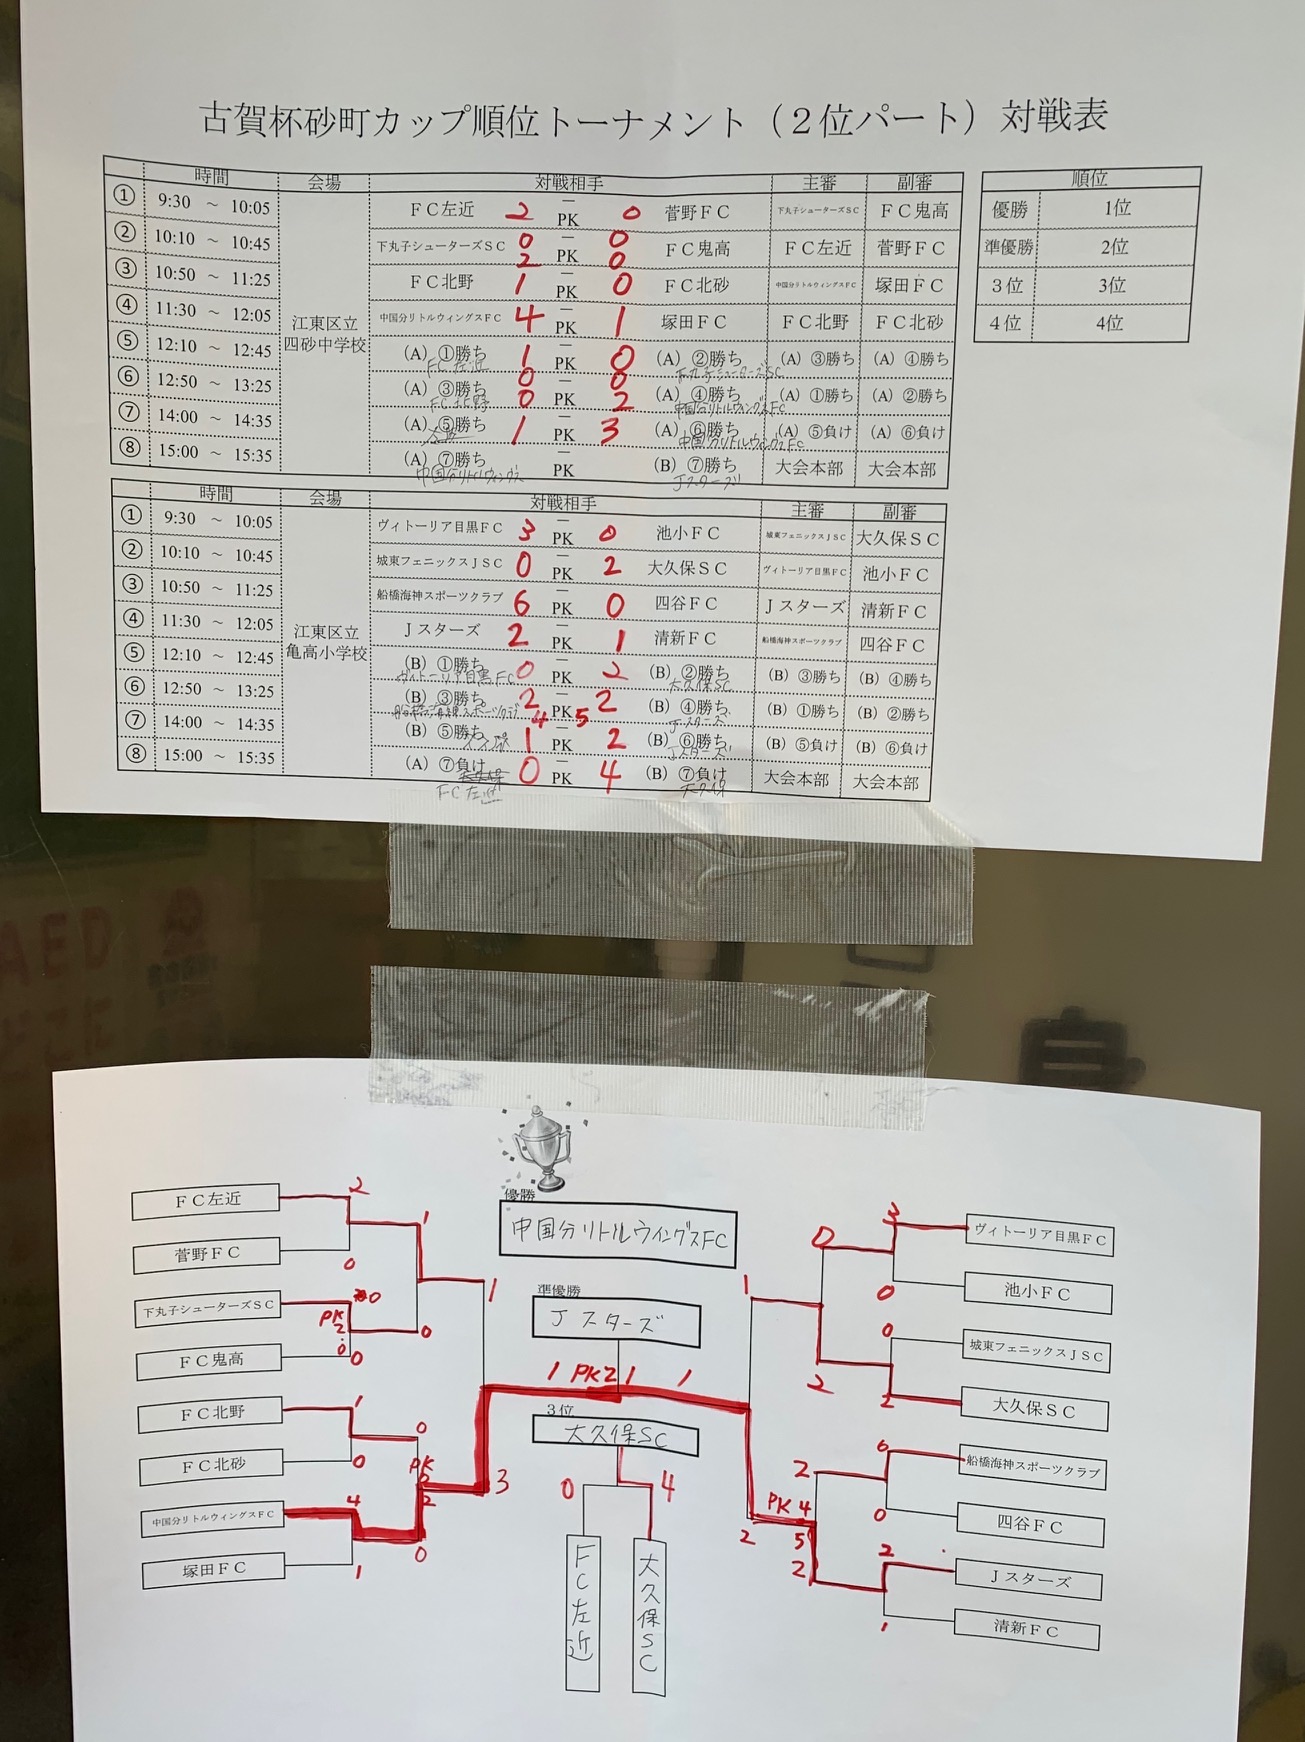 古賀杯砂町カップ順位トーナメント（２位パート）対戦表
時間 会場 対戦相手 主審 副審
① 9:30 ～ 10:05 ＦＣ左近 2 － PK 0 菅野ＦＣ 下丸子シューターズＳＣ ＦＣ鬼高
② 10:10 ～ 10:45 下丸子シューターズＳＣ 0 － 0 ＦＣ鬼高 ＦＣ左近 菅野ＦＣ
2 PK 0
③ 10:50 ～ 11:25 ＦＣ北野 1 － PK 0 ＦＣ北砂 中国分リトルウィングスＦＣ 塚田ＦＣ
④ 11:30 ～ 12:05 中国分リトルウィングスＦＣ 4 － PK 1 塚田ＦＣ ＦＣ北野 ＦＣ北砂
江東区立
四砂中学校
⑤ 12:10 ～ 12:45 (A) ①勝ち 1 － PK 0 (A) ②勝ち (A) ③勝ち (A) ④勝ち
FC左近 下丸子シューターズSC
⑥ 12:50 ～ 13:25 (A) ③勝ち 0 － 0 (A) ④勝ち (A) ①勝ち (A) ②勝ち
FC北野 0 PK 2 中国分リトルウィングスFC
⑦ 14:00 ～ 14:35 (A) ⑤勝ち 1 － PK 3 (A) ⑥勝ち (A) ⑤負け (A) ⑥負け
中国分リトルウィングスFC
⑧ 15:00 ～ 15:35 (A) ⑦勝ち － PK (B) ⑦勝ち 大会本部 大会本部
中国分リトルウィングス Jスターズ
順位
優勝 1位
準優勝 2位
３位 3位
４位 4位
時間 会場 対戦相手 主審 副審
① 9:30 ～ 10:05 ヴィトーリア目黒ＦＣ 3 － PK 0 池小ＦＣ 城東フェニックスＪＳＣ 大久保ＳＣ
② 10:10 ～ 10:45 城東フェニックスＪＳＣ 0 － PK 2 大久保ＳＣ ヴィトーリア目黒ＦＣ 池小ＦＣ
③ 10:50 ～ 11:25 船橋海神スポーツクラブ 6 － PK 0 四谷ＦＣ Ｊスターズ 清新ＦＣ
④ 11:30 ～ 12:05 Ｊスターズ 2 － PK 1 清新ＦＣ 船橋海神スポーツクラブ 四谷ＦＣ
江東区立
亀高小学校
⑤ 12:10 ～ 12:45 (B) ①勝ち 0 － PK 2 (B) ②勝ち (B) ③勝ち (B) ④勝ち
ヴィトーリア目黒FC 大久保SC
⑥ 12:50 ～ 13:25 (B) ③勝ち 2 － 2 (B) ④勝ち (B) ①勝ち (B) ②勝ち
船橋海神スポーツクラブ 4 PK 5 Jスターズ
⑦ 14:00 ～ 14:35 (B) ⑤勝ち 1 － PK 2 (B) ⑥勝ち (B) ⑤負け (B) ⑥負け
大久保 Jスターズ
⑧ 15:00 ～ 15:35 (A) ⑦負け 0 － PK 4 (B) ⑦負け 大会本部 大会本部
大久保 大久保
FC左近
優勝
中国分リトルウイングスFC
準優勝
Jスターズ
1 PK2 1 1
３位
大久保SC
0 4
FC左近
大久保SC
ＦＣ左近 2
菅野ＦＣ 0
1
下丸子シューターズＳＣ 0
PK
2
:
0
ＦＣ鬼高 0
0
1
ＦＣ北野 1
ＦＣ北砂 0
0
PK
0
2
中国分リトルウィングスＦＣ 4
塚田ＦＣ 1
0
3
ヴィトーリア目黒ＦＣ 3
池小ＦＣ 0
0
城東フェニックスＪＳＣ 0
大久保ＳＣ 2
2
1
船橋海神スポーツクラブ 6
四谷ＦＣ 0
2
PK 4
5
2
Ｊスターズ 2
清新ＦＣ 1
2
AED